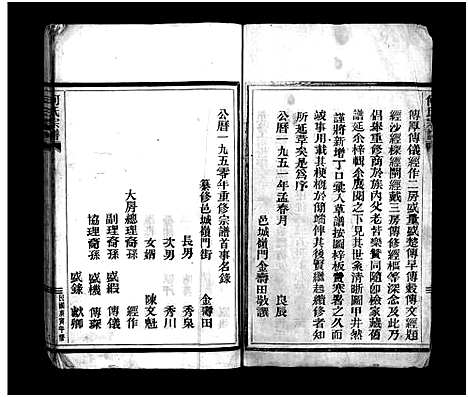 傳厚傳儀經作二房盛量盛楚傳早傳毅傳文經題
經沙經樑經閘經戴三房傳修經樞等深念及此乃
倡舉重修商於族內父老皆樂贊同隨卽檢家藏舊
譜延余梓輯余展閱之下見其世系清晰圖甲井然
謹將新增丁口彙入草譜按圖梓板費寒暑之久而
竣事用載其梗概於簡端俾其後賢繼起續修者知
所延萃矣是爲序
公曆一九五一年孟春月　良辰
邑城嶺門金壽田敬譔
公曆一九五零年重修宗譜首事名錄
纂修邑城嶺門街　金壽田
長男　秀泉
次男　秀川
女婿　陳文魁
大房總理裔孫　經作
副理裔孫　盛緞　傳儀
協理裔孫　盛機　傳琛
盛錄　獻卿
何氏宗譜
民國庚寅年修